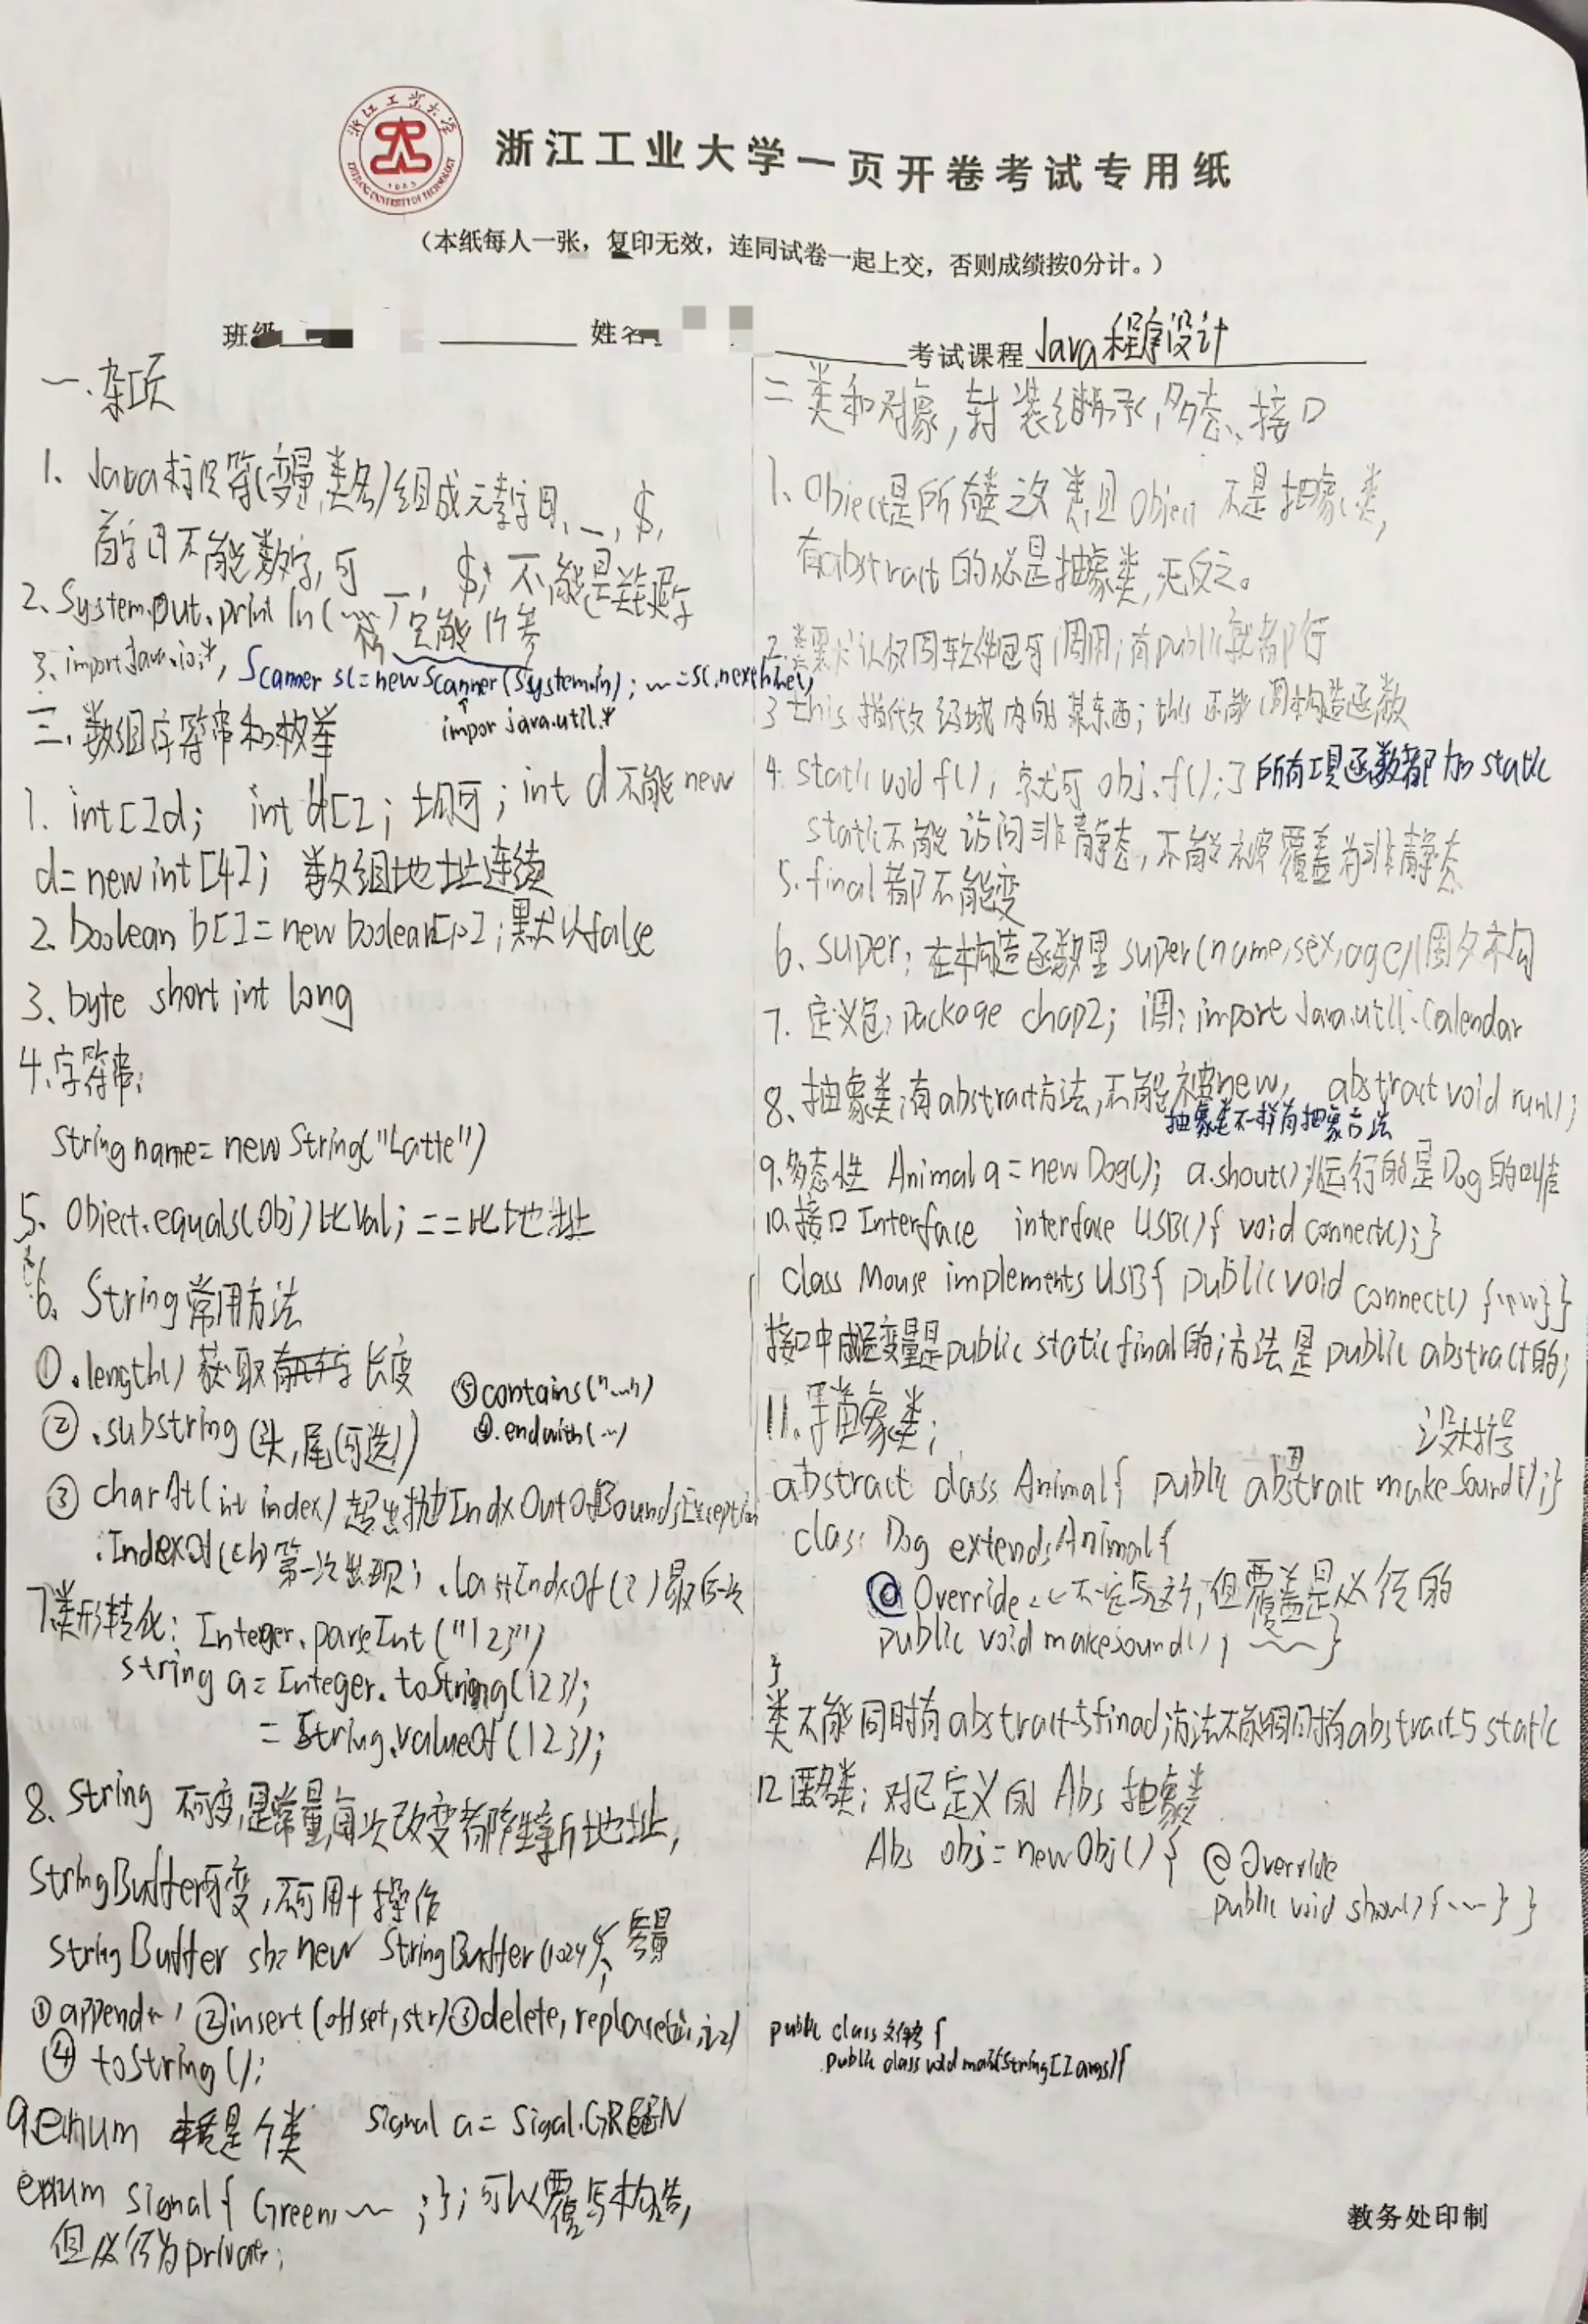 浙江工业大学一页开卷考试专用纸
(本纸每人一张，复印无效，连同试卷一起上交，否则成绩按0分计。)
班级
姓名
考试课程 Java程序设计
一.杂项
1、Java标识符(变量,类名)组成元素字母、_,$,
首字母不能数字,可 _, $; 不能是关键字
2、System.out.println(
3、import java.io.*, Scanner sc=new Scanner(System.in);
impor java.util.*
三、数组字符串和枚举
1. int[]d; int d[]; 均可; int d不能new
d=new int[4]; 数组地址连续
2. boolean b[]=new boolean[10];默认false
3、byte short int long
4、字符串:
String name=new String("Latte")
5、Object.equals(Obj)比val; ==比地址
6、String常用方法
①.length()获取 长度
②.substring(头,尾(可选))
⑤contains("...")
④.endwith(...)
③charAt(int index)超出抛IndxOutOfBoundsException
.IndexOf(ch)第一次出现; .lastIndxOf(?)最后一次
7类形转化: Integer.parseInt("123")
string a=Integer.toString(123);
=String.valueOf(123);
8、String 不可变,是常量,每次改变都降生新地址,
StringBuffer可变,不可用+操作
StringBuffer sb=new StringBuffer(1024) 容量
①append ②insert(offset,str)③delete, replace
④toString();
9.enum 本质是个类 Signal a=Sigal.GREEN
enum Signal{Green, ~ ;};可以覆写构造,
但必须为private;
二类和对象,封装继承,多态、接口
1、Object是所有类之父类,且Object 不是抽象类,
有abstract的必是抽象类,无反之。
2.类默认仅同软件包可调用;有public就都行
3 this 指代 域内的某东西; this 还能调构造函数
4. static void f(), 就可 obj.f(); 所有工具函数都加static
static不能访问非静态,不能被覆盖为非静态
5.final都不能变
6、super; 在构造函数里super(name,sex,age)调父构
7. 定义包:package chap2; 调:import java.util.Calendar
8、抽象类;有abstract方法,不能被new, abstract void run();
抽象类不一样有抽象方法
9.多态性 Animal a=new Dog(); a.shout();运行的是Dog的
10.接口Interface interface USB(){ void connect();}
class Mouse implements USB{ public void connect() {...}}
接口中成员变量是public static final的;方法是public abstract的;
11. 象类;
没大括号
abstract class Animal{ public abstract makeSound();}
class Dog extends Animal{
@Override, ← 不一定写这个,但覆盖是必须的
public void makesound(), ~ }
}
类不能同时有abstract与final;方法不能同时有abstract与static
12匿名类; 对已定义的 Abs 抽象类
Abs obj=new Obj(){ @Override
public void show(){...} }
public class 文件名{
public class void main(String[] args){
教务处印制